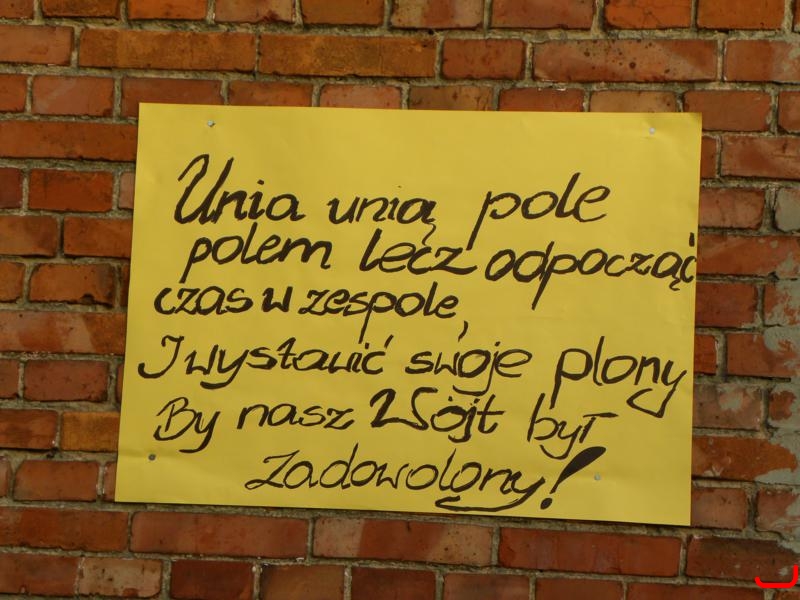 Unia unią pole
polem lecz odpocząć
czas w zespole,
I wystawić swoje plony
By nasz Wójt był
zadowolony!